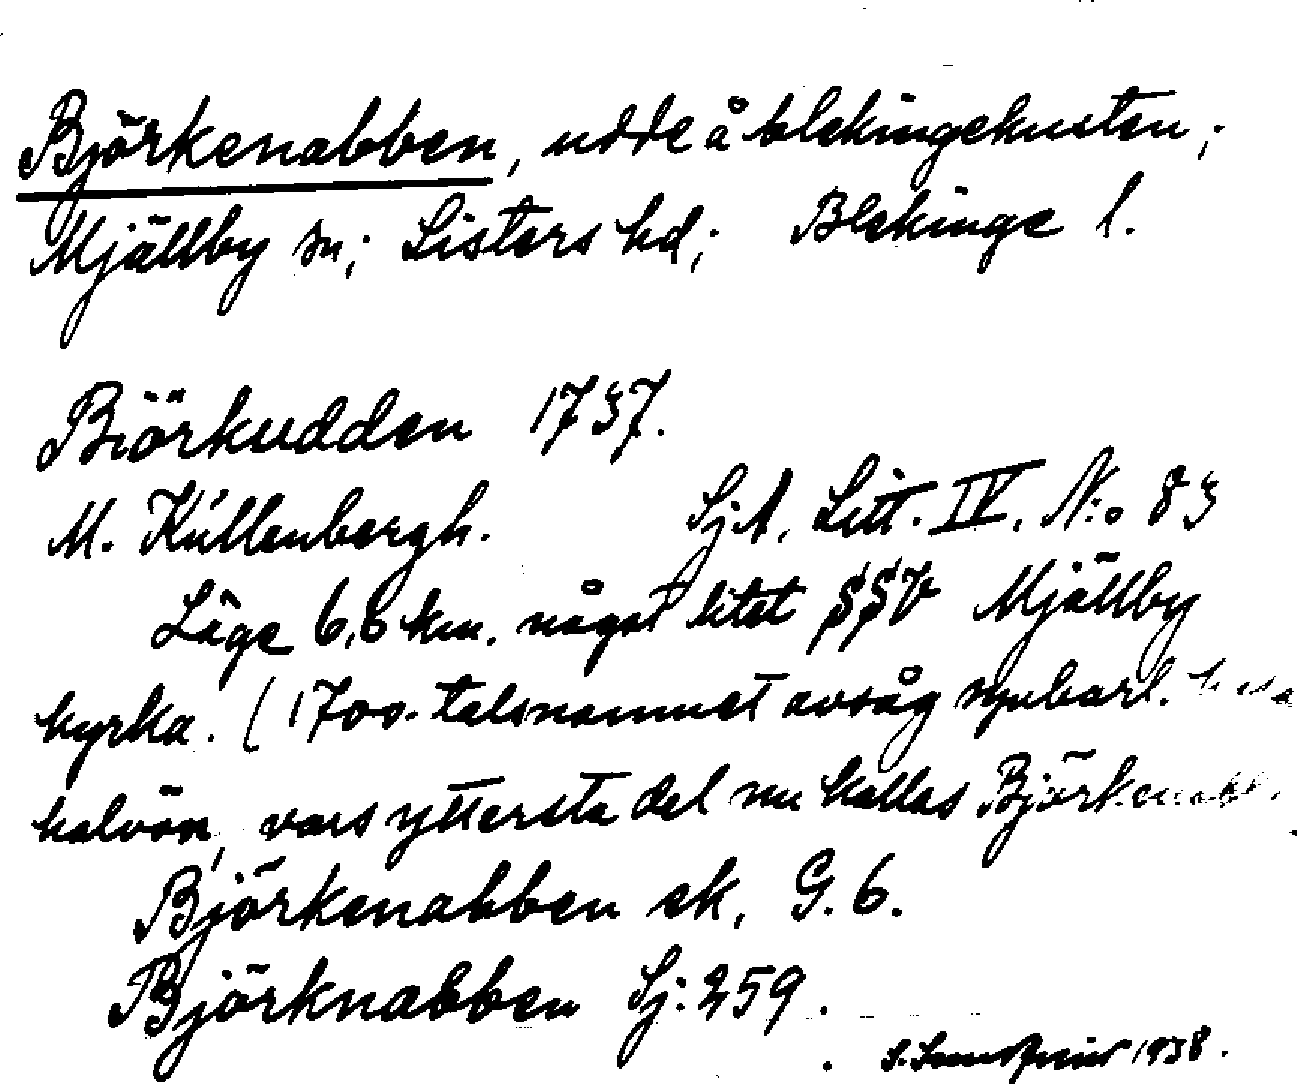 Björkenabben, udde å blekingekusten;
Mjällby sn; Listers hd; Blekinge l.
Biörkudden 1737.
M. Küllenbergh. SjA, Litt. IV. N:o 83
Läge 6,8 km. något litet SSV Mjällby
kyrka. (1700-talsnamnet avsåg synbarl. hela
halvön, vars yttersta del nu kallas Björkenabb.
Björkenabben ek. G. 6.
Björknabben Sj: 259.
1938.